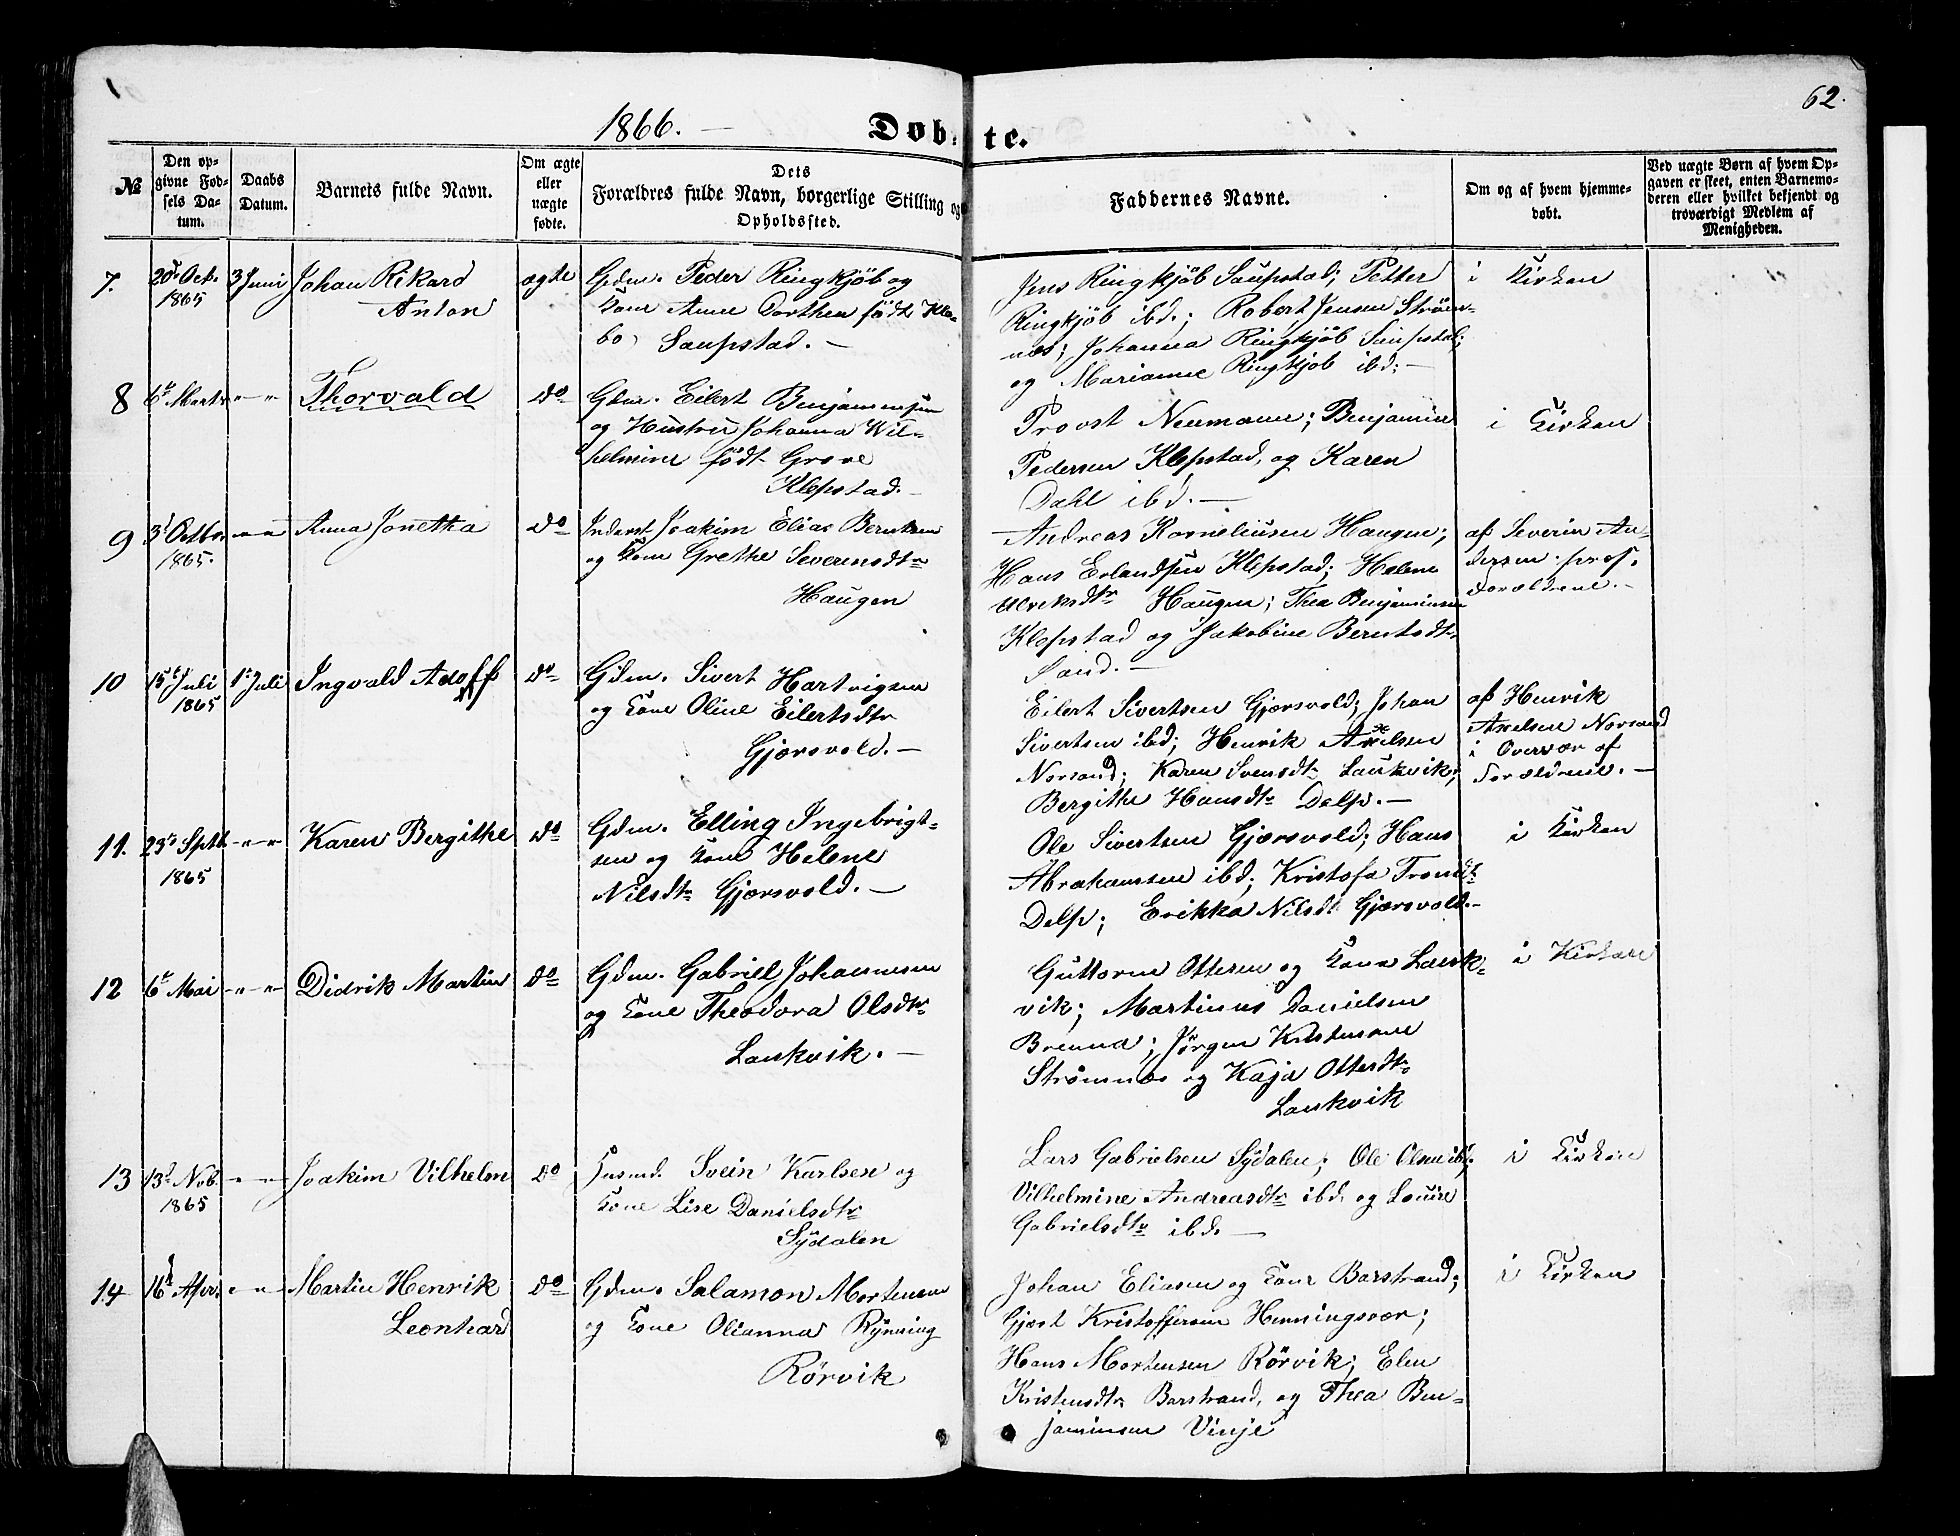 62.
1866. — Døbte.
№
Den opgivne Fødsels Datum.
Daabs Datum.
Barnets fulde Navn.
Om ægte eller uægte fødte.
Dets Forældres fulde Navn, borgerlige Stilling og Opholdssted.
Faddernes Navne.
Om og af hvem hjemmedøbt.
Ved uægte Børn af hvem Opgaven er skeet, enten Barnemoderen eller hvilket bekjendt og troværdigt Medlem af Menigheden.
7.
20de Octb. 1865
3 Juni
Johan Rikard
Anton
ægte
Gdm. Peder Ringkjöb og
Kone Anne Dorthea född Kle-
bo, Saupstad. —
Jens Ringkjöb Saupstad; Petter
Ringkjöb ibd.; Robert Jensen Ström-
næs; Johanna Ringkjöb Saupstad;
og Marianne Ringkjöb ibd. —
i Kirken
8
6te Marts
-"-"-
Thorvald
do
Gdm. Eilert Benjaminsen
og Hustru Johanna Wil-
helmine född Grove
Klepstad. —
Provst Neumann; Benjamin
Pedersen Klepstad, og Karen
Dahl ibd. —
i Kirken
9
3d Octbr. 1865.
-"-"-
Anna Jonetha
do
Inderst Joakim Elias Berntsen
og Kone Grethe Severinsdtr
Haugen
Andreas Korneliusen Haugen;
Hans Erlandsen Klepstad; Helene
Ulriksdtr Haugen; Thea Benjaminsen
Klepstad og Jakobine Berntsdtr
Sand. —
af Severin An-
dersen
Forældrene. —
10
15de Juli 1865
1ste Juli
Ingvald Adolf
do
Gdm. Sivert Hartvigsen
og Kone Oline Eilertsdtr
Gjærsvold. —
Eilert Sivertsen Gjærsvold; Johan
Sivertsen ibd; Henrik Axelsen
Norsand; Karen Svensdtr Laukvik;
Bergithe Hansdtr Delp. —
af Henrik
Axelsen Norsand
i Overvær af
Forældrene. —
11.
23de Septb. 1865
-"-"-
Karen Bergithe
do
Gdm. Elling Ingebrigt-
sen og Kone Helene
Nilsdtr Gjærsvold. —
Ole Sivertsen Gjærsvold; Hans
Abrahamsen ibd; Kristofa Trondsdtr
Delp; Erikka Nilsdtr Gjærsvold. —
i Kirken
12
6te Mai
-"-"-
Didrik Martin
do
Gdm. Gabriel Johannesen
og Kone Theodora Olsdtr
Laukvik. —
Guttorm Ottesen og Kone Lauk-
vik; Martinus Danielsen
Brenna; Jörgen Kristensen
Strømnæs og Kaja Ottersdtr
Laukvik
i Kirken
13
13de Nob. 1865
-"-"-
Joakim Vilhelm
do
Husmd. Svein Karlsen og
Kone Lise Danielsdtr
Sydalen
Lars Gabrielsen Sydalen; Ole Olsen ibd;
Vilhelmine Andreasdtr ibd. og Louise
Gabrielsdtr ibd. —
i Kirken
14
16de Apr.
-"-"-
Martin Henrik
Leonhard
do
Gdm. Salamon Mortensen
og Kone Olianna Rynning
Rörvik
Johan Eliasen og Kone Barstrand;
Gjært Kristoffersen Henningsvær;
Hans Mortensen Rörvik; Elen
Kristensdtr Barstrand, og Thea Ben-
jaminsen Vinje
i Kirken